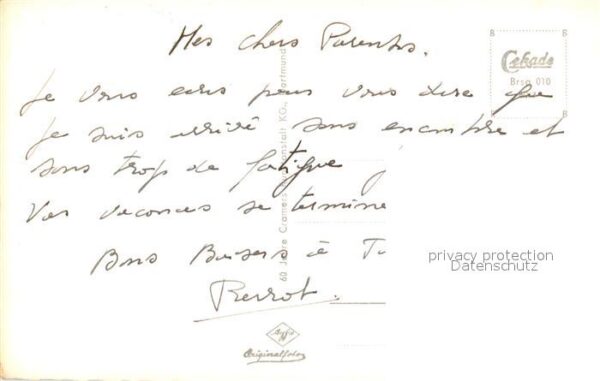 Mes chers Parents.
Je vous ecris pour vous dire que
Je suis arrivé sans encombre et
sans trop de fatigue
Vos vacances se termine
Bons Baisers à To
Pierrot.
Cekade
Brsg 010
60 Jahre Cramers Kunstanstalt KG., Dortmund
Agfa
Originalfoto
privacy protection
Datenschutz